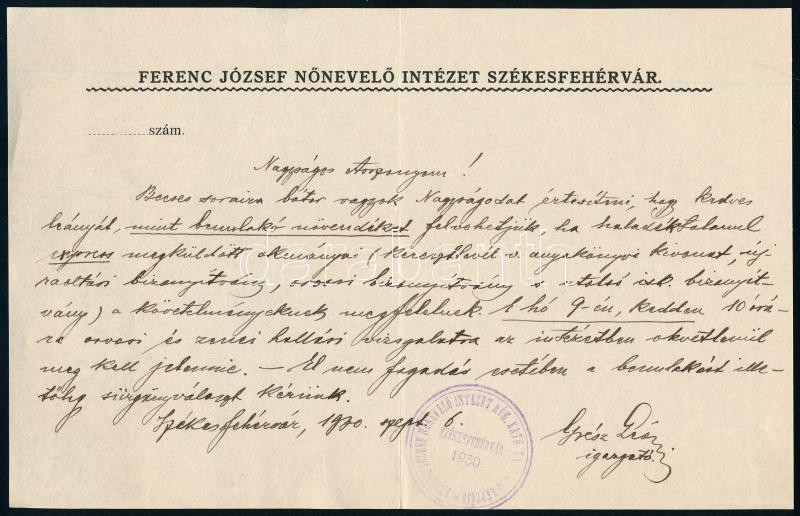 FERENC JÓZSEF NŐNEVELŐ INTÉZET SZÉKESFEHÉRVÁR.
szám.
Nagyságos Asszonyom!
Becses soraira bátor vagyok Nagyságodat értesíteni, hogy kedves
leányát, mint bennlakó növendéket felvehetjük, ha haladéktalanul
express megküldött okmányai (keresztlevél v. anyakönyvi kivonat, új-
raoltási bizonyítvány, orvosi bizonyítvány s utolsó isk. bizonyít-
vány) a követelményeknek megfelelnek. E hó 9-én, kedden 10 órá-
ra orvosi és zenei hallási vizsgálatra az intézetben okvetlenül
meg kell jelennie. — El nem fogadás esetében a bennlakást ille-
tőleg sürgönyválaszt kérünk.
Székesfehérvár, 1930 szept. 6.
igazgató.
NŐNEVELŐ INTÉZET RÓM. KATH.
SZÉKESFEHÉRVÁR
1930
darabanth